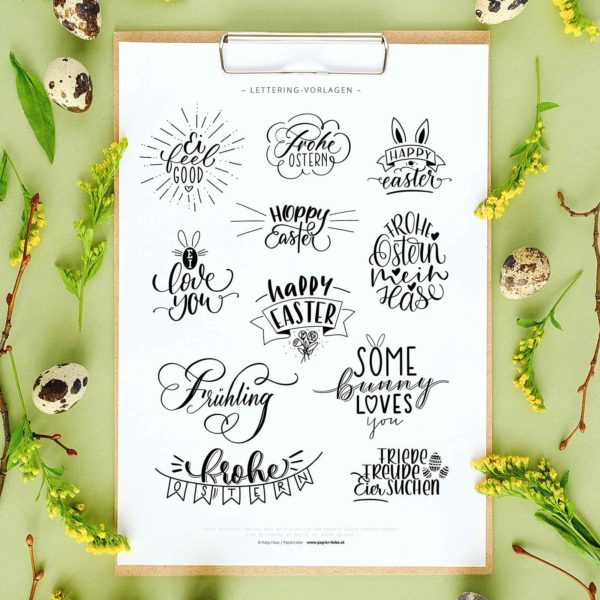 – LETTERING-VORLAGEN –
Ei
feel
GOOD
Frohe
OSTERN
HAPPY
easter
HOPPY
Easter
FROHE
Ostern
mein
HASE
EI
love
you
happy
EASTER
Frühling
SOME
bunny
LOVES
you
frohe
OSTERN
FRIEDE
FREUDE
Eier SUCHEN
© Katja Haas | PapierLiebe www.papier-liebe.at